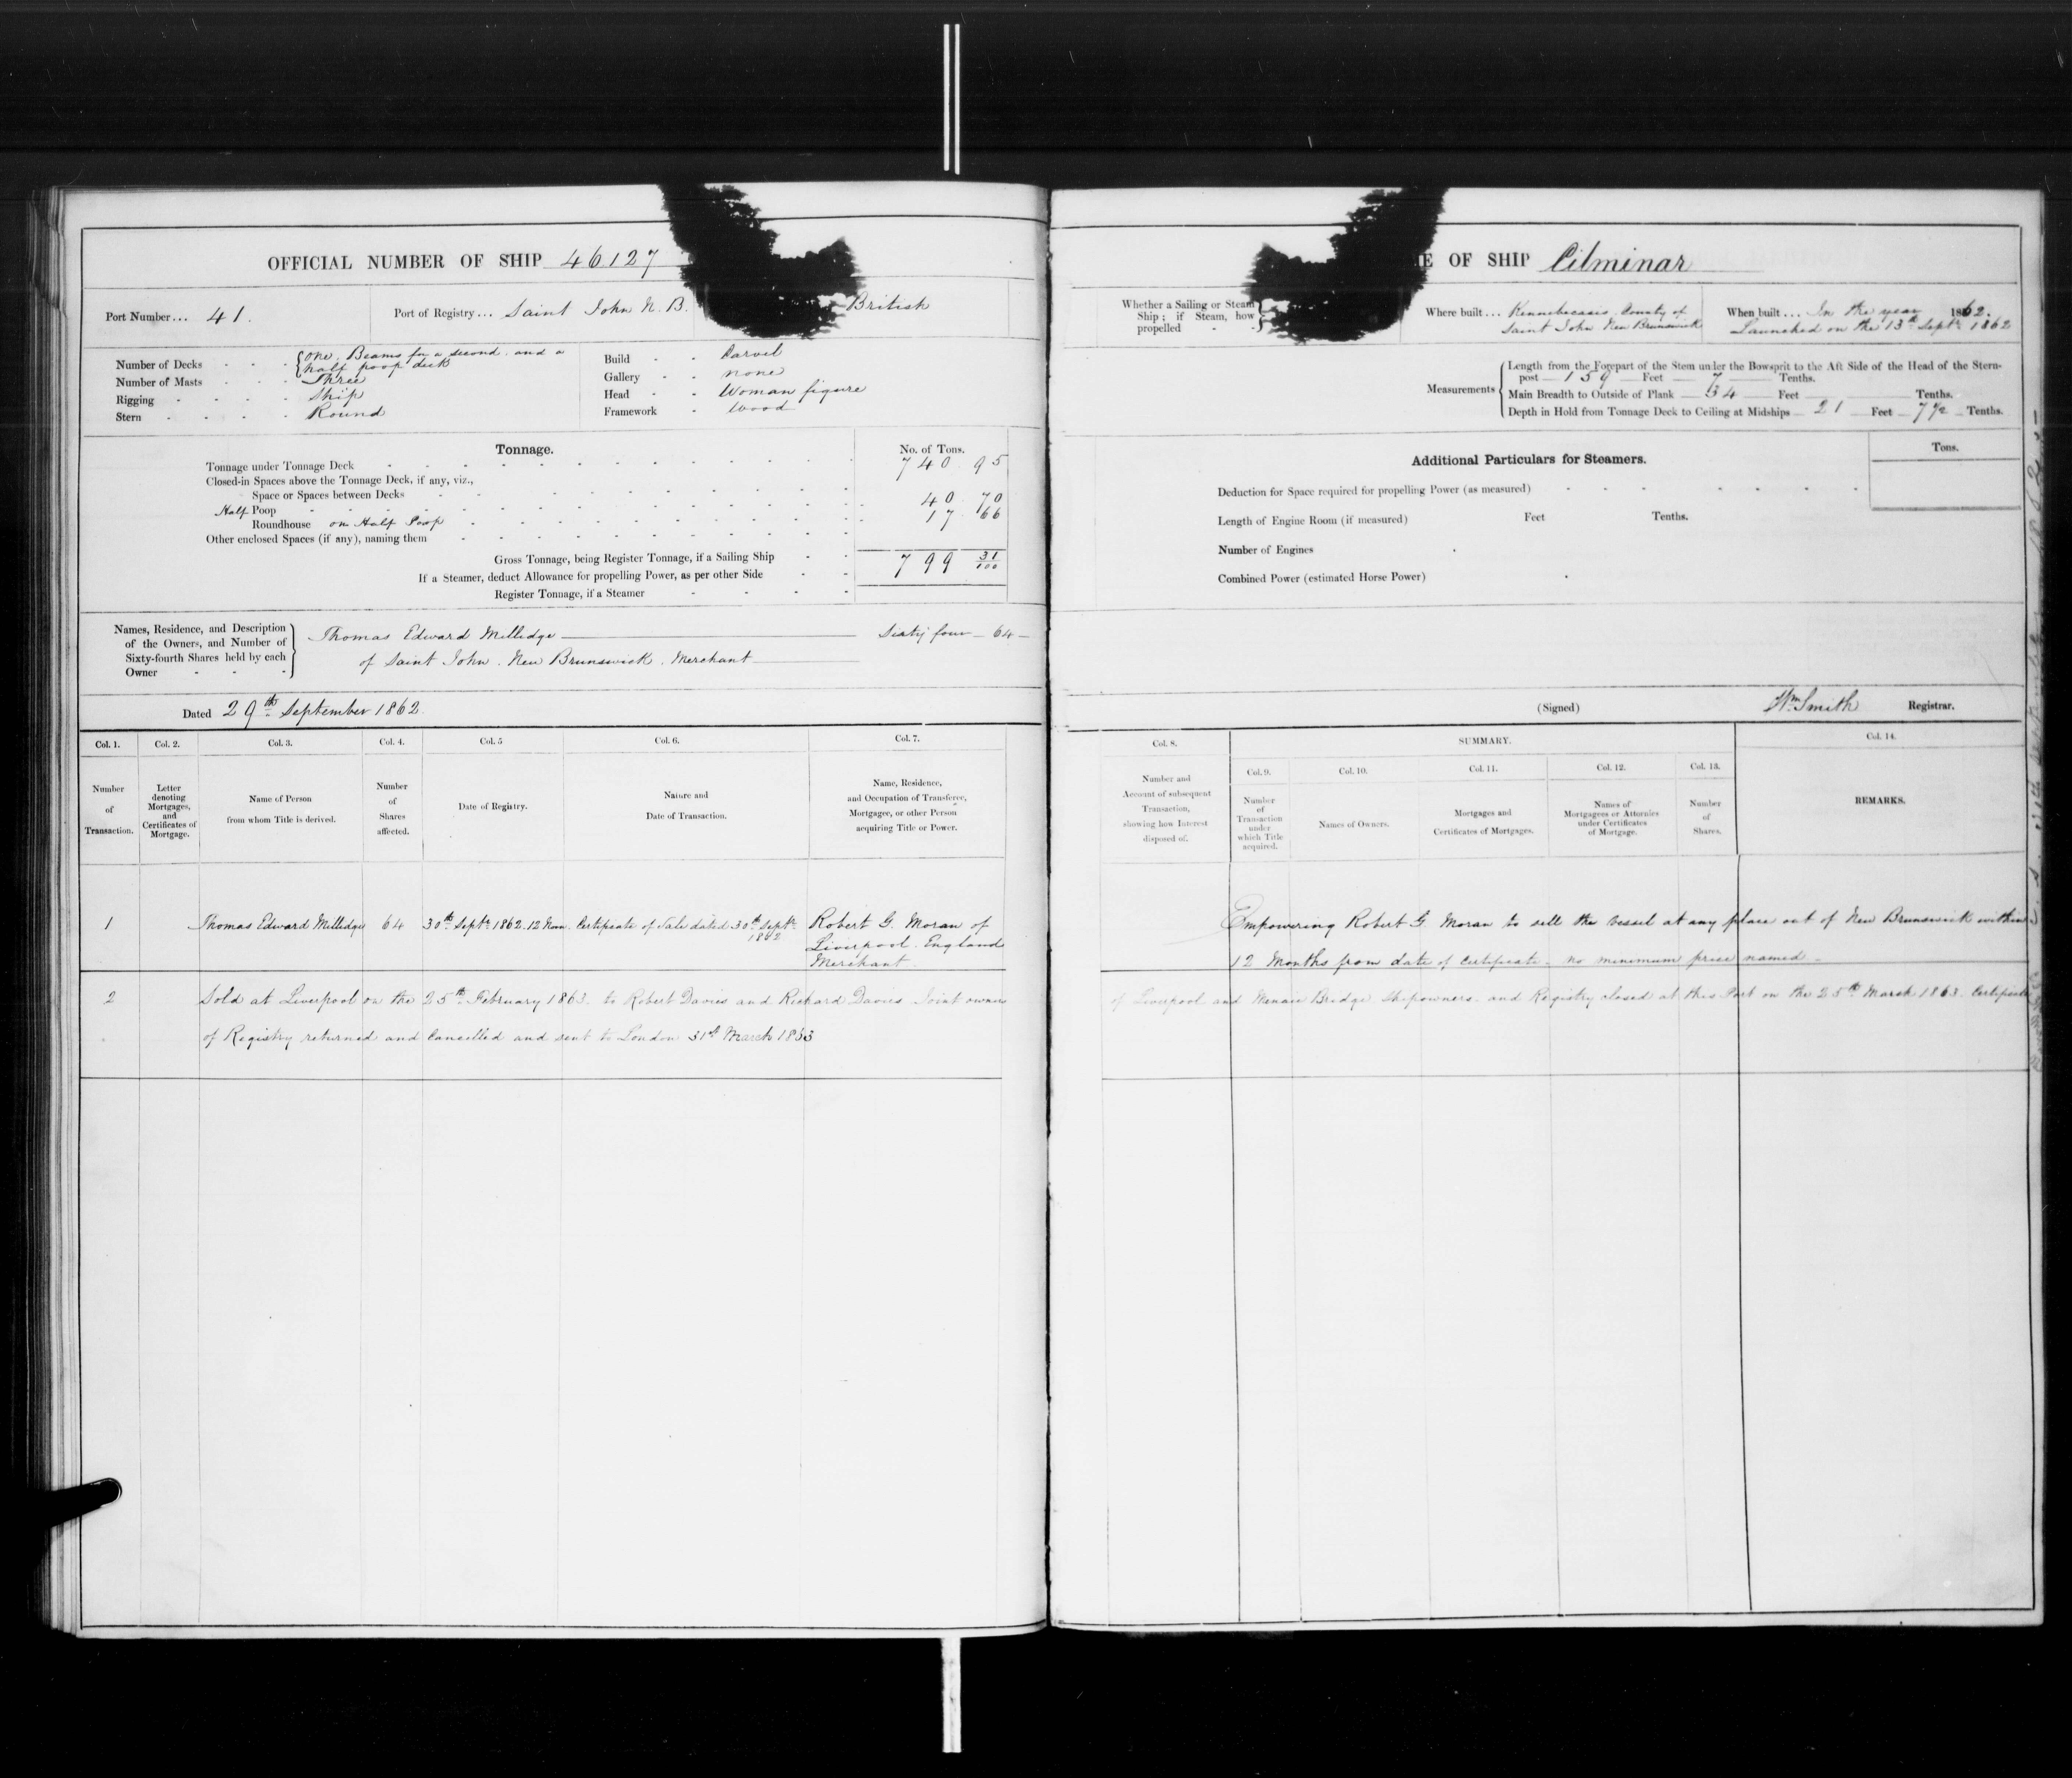 OFFICIAL NUMBER OF SHIP 46127
Port Number... 41.
Port of Registry... Saint John N.B.
British
Number of Decks - - - { One, Beams for a second and a
half poop deck
Number of Masts - - - Three
Rigging - - - - Ship
Stern - - - - Round
Build - - Carvel
Gallery - - none
Head - - Woman figure
Framework - Wood
Tonnage.
No. of Tons.
Tonnage under Tonnage Deck 740.95
Closed-in Spaces above the Tonnage Deck, if any, viz.,
Space or Spaces between Decks
Half Poop 40.70
Roundhouse on Half Poop 17.66
Other enclosed Spaces (if any), naming them
Gross Tonnage, being Register Tonnage, if a Sailing Ship 799 31/100
If a Steamer, deduct Allowance for propelling Power, as per other Side
Register Tonnage, if a Steamer
Names, Residence, and Description
of the Owners, and Number of
Sixty-fourth Shares held by each
Owner
Thomas Edward Millidge — Sixty four — 64 —
of Saint John. New Brunswick. Merchant
Dated 29th September 1862.
Col. 1. Col. 2. Col. 3. Col. 4. Col. 5 Col. 6. Col. 7.
Number
of
Transaction.
Letter
denoting
Mortgages,
and
Certificates of
Mortgage.
Name of Person
from whom Title is derived.
Number
of
Shares
affected.
Date of Registry.
Nature and
Date of Transaction.
Name, Residence,
and Occupation of Transferee,
Mortgagee, or other Person
acquiring Title or Power.
1 Thomas Edward Millidge 64 30th Septr 1862. 12 Noon. Certificate of Sale dated 30th Septr
1862
Robert G. Moran of
Liverpool. England
Merchant
2 Sold at Liverpool on the 25th February 1863. to Robert Davies and Richard Davies Joint owners
of Registry returned and Cancelled and sent to London 31st March 1863
E OF SHIP Cilminar
Whether a Sailing or Steam
Ship; if Steam, how
propelled - -
Where built... Kennebecasis, County of
Saint John New Brunswick
When built... In the year 1862.
Launched on the 13th Septr 1862
Measurements
Length from the Forepart of the Stem under the Bowsprit to the Aft Side of the Head of the Stern-
post — 159 — Feet — 7 — Tenths.
Main Breadth to Outside of Plank — 34 Feet Tenths.
Depth in Hold from Tonnage Deck to Ceiling at Midships — 21 Feet — 7½ — Tenths.
Additional Particulars for Steamers.
Tons.
Deduction for Space required for propelling Power (as measured)
Length of Engine Room (if measured) Feet Tenths.
Number of Engines
Combined Power (estimated Horse Power)
(Signed) Wm Smith Registrar.
Col. 8.
SUMMARY.
Col. 14.
Col. 9. Col. 10. Col. 11. Col. 12. Col. 13.
Number and
Account of subsequent
Transaction,
showing how Interest
disposed of.
Number
of
Transaction
under
which Title
acquired.
Names of Owners.
Mortgages and
Certificates of Mortgages.
Names of
Mortgagees or Attornies
under Certificates
of Mortgage.
Number
of
Shares.
REMARKS.
Empowering Robert G. Moran to sell the vessel at any place out of New Brunswick within
12 Months from date of Certificate — no minimum price named —
of Liverpool and Menai Bridge Shipowners. and Registry closed at this Port on the 25th March 1863. Certificate